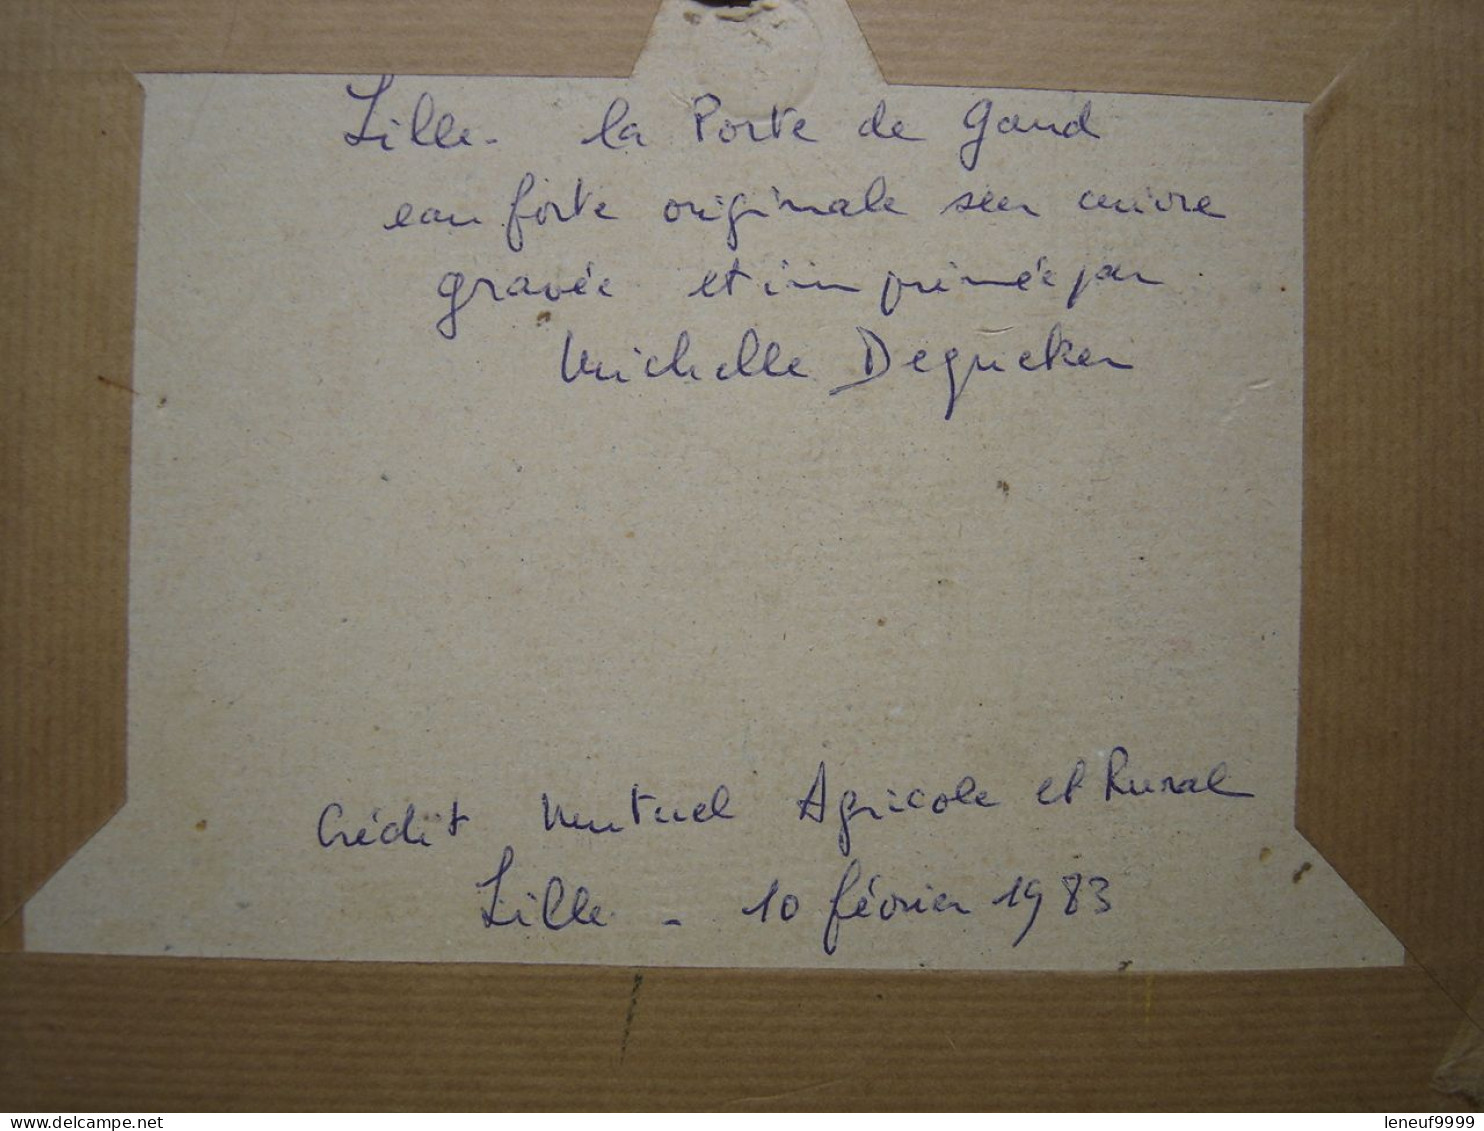 Lille - la Porte de Gand
eau forte originale sur cuivre
gravée et imprimée par
Michelle Degueker
Crédit Mutuel Agricole et Rural
Lille - 10 février 1983
www.delcampe.net
leneuf9999